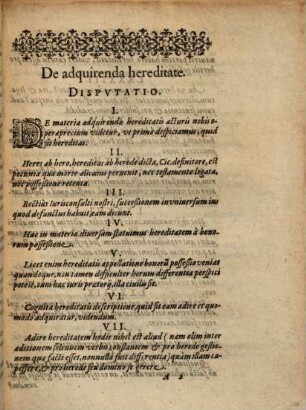 De adquirenda hereditate.
DISPVTATIO.
I.
DE materia adquirendæ hereditatis acturis nobis
operæprecium videtur, vt primo despiciamus, quid
sit hereditas.
II.
Heres ab hero, hereditas ab herede dicta, Cic. definitore, est
pecunia quæ morte alicuius peruenit, nec testamento legata,
nec possessione retenta.
III.
Rectius Iurisconsulti nostri, successionem in vniuersum ius
quod defunctus habuit, eam dicunt.
IV.
Hac in materia diuersam statuimus hereditatem à bono-
rum possessione.
V.
Licet enim hereditatis appellatione bonorū possessio veniat
quandoque, non tamen difficulter horum differentia perspici
potest, cum hæc iuris prætorij, illa ciuilis sit.
VI.
Cognita hereditatis descriptione, quid sit eam adire et quo-
modo adquiratur, videndum.
VII.
Adire hereditatem hodie nihil est aliud (nam olim inter
aditionem solennem verbis constantem & pro herede gestio-
nem quæ facti esset, nonnulla fuit differentia) quàm illam ca-
pessere, & pro herede seu domino se gerere.